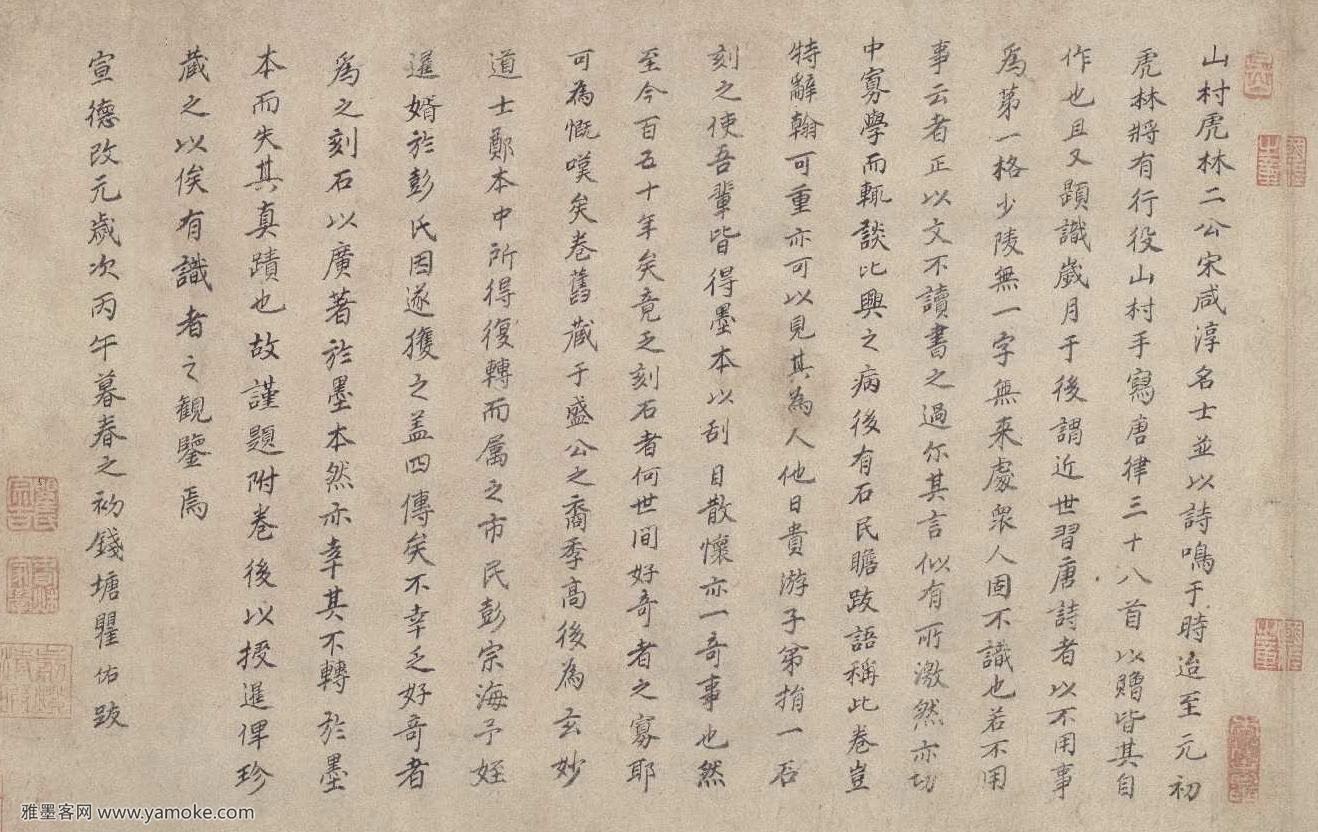 山村虎林二公宋咸淳名士並以詩鳴于時迨至元初
虎林將有行役山村手寫唐律三十八首以贈皆其自
作也且又題識歲月于後謂近世習唐詩者以不用事
為第一格少陵無一字無来處衆人固不識也若不用
事云者正以文不讀書之過尓其言似有所激然亦切
中寡學而輒談比興之病後有石民瞻跋語稱此卷豈
特辭翰可重亦可以見其為人他日貴游子第捐一石
刻之使吾輩皆得墨本以刮目散懷亦一奇事也然
至今百五十年矣竟乏刻石者何世間好奇者之寡耶
可為慨嘆矣卷舊藏于盛公之裔季高後為玄妙
道士鄭本中所得復轉而属之市民彭宗海予姪
暹婿於彭氏因遂獲之盖四傳矣不幸乏好奇者
為之刻石以廣著於墨本然亦幸其不轉於墨
本而失其真蹟也故謹題附卷後以授暹俾珍
藏之以俟有識者之觀鑒焉
宣德改元歲次丙午暮春之初錢塘瞿佑跋
雅墨客网 www.yamoke.com